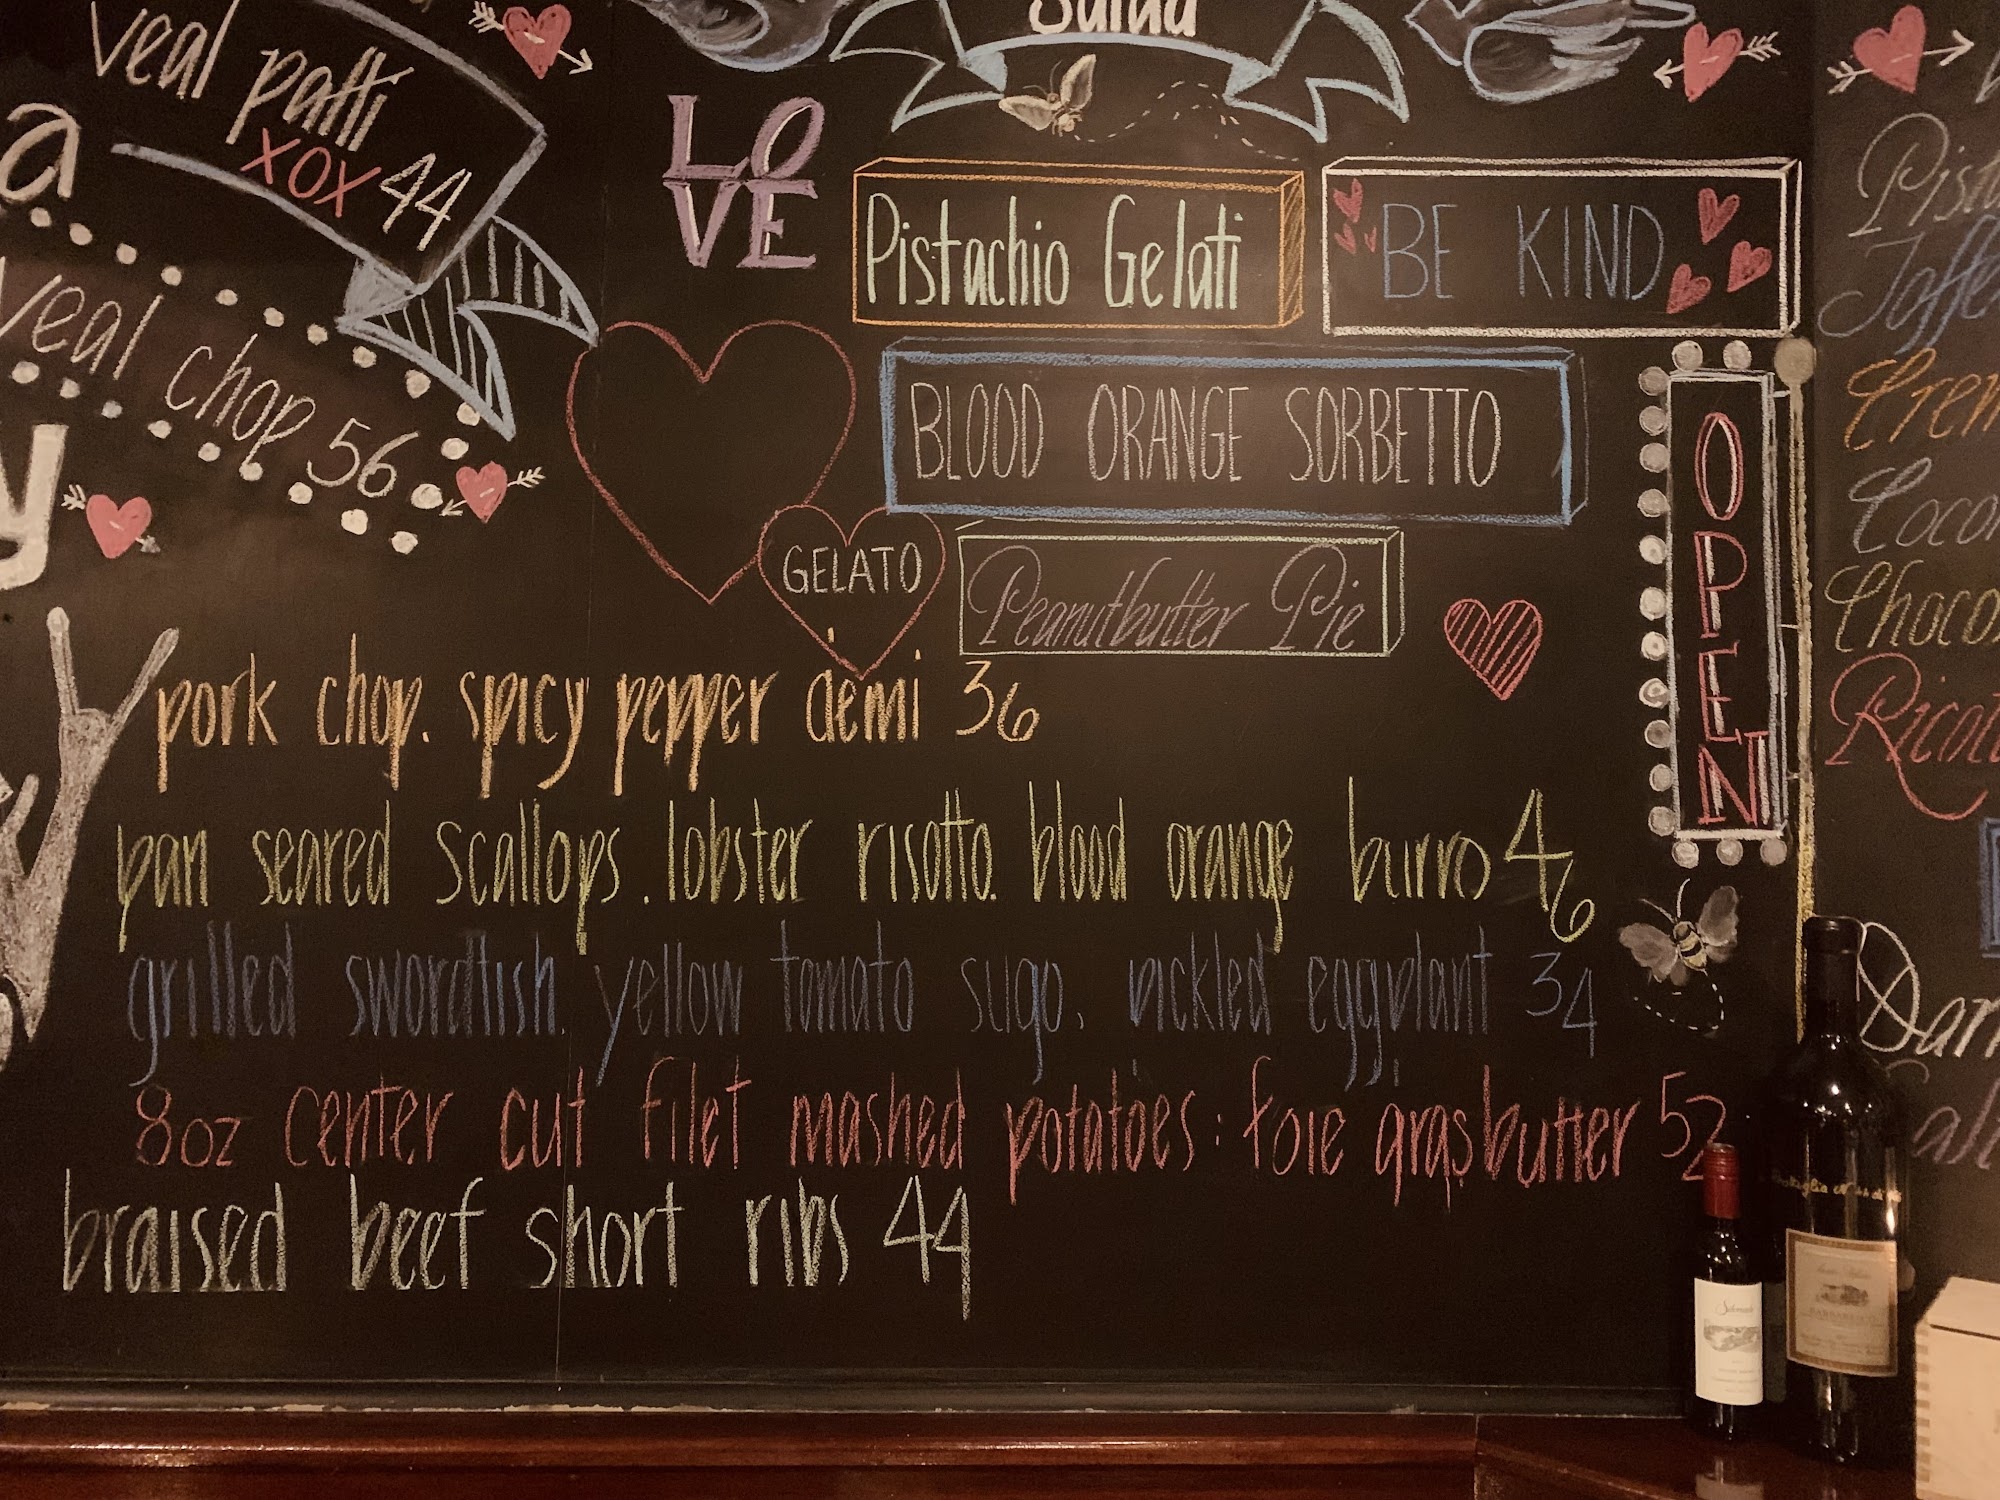 Salad
veal patti
xox 44
a
veal chop 56
y
LO
VE
Pistachio Gelati
BE KIND
BLOOD ORANGE SORBETTO
GELATO
Peanutbutter Pie
OPEN
pork chop. spicy pepper demi 36
pan seared scallops. lobster risotto. blood orange burro 46
grilled swordfish. yellow tomato sugo. pickled eggplant 34
8oz center cut filet mashed potatoes: foie gras butter 52
braised beef short ribs 44